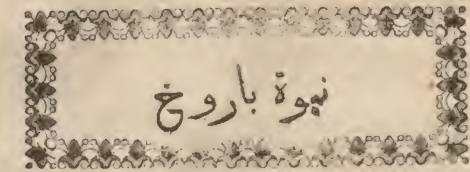 نبوة باروخ